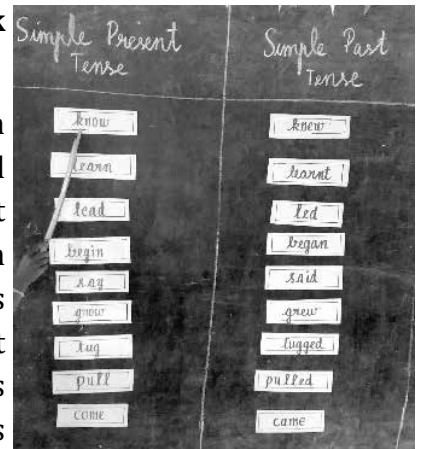 k
Simple Present Tense
Simple Past Tense
know knew
learn learnt
lead led
begin began
say said
grow grew
tug tugged
pull pulled
come came